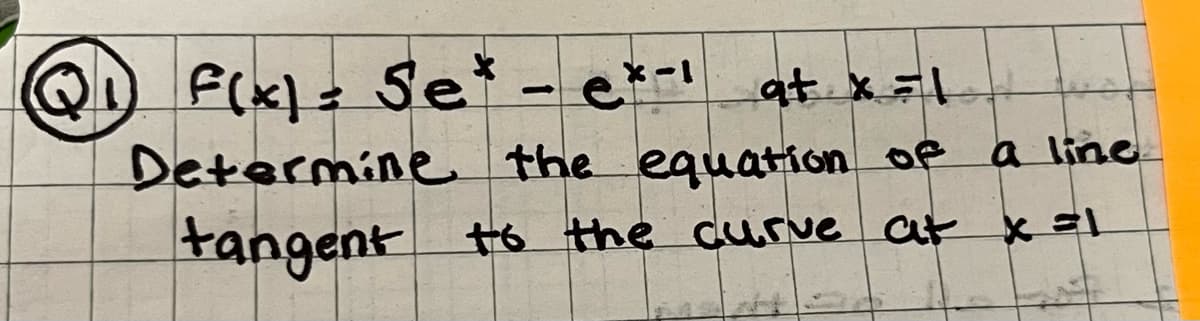 Q1 f(x) = 5eˣ - eˣ⁻¹ at x = 1
Determine the equation of a line
tangent to the curve at x = 1